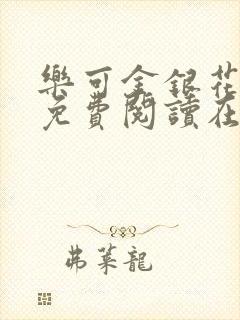 樂可金銀花
免費閱讀在
弗萊龍